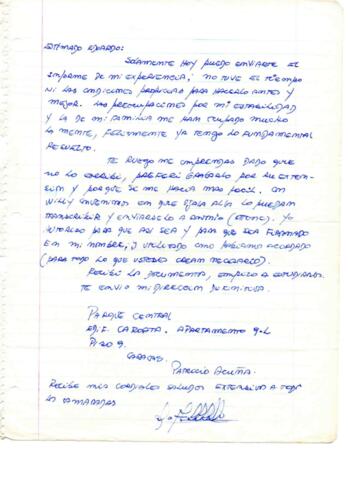 ESTIMADO EDUARDO:
SOLAMENTE HOY PUEDO ENVIARTE EL
INFORME DE MI EXPERIENCIA; NO TUVE EL TIEMPO
NI LAS CONDICIONES PARA HACERLO ANTES Y
MEJOR. LAS PREOCUPACIONES POR MI ESTABILIDAD
Y LA DE MI FAMILIA ME HAN OCUPADO MUCHO
LA MENTE, FELIZMENTE YA TENGO LO FUNDAMENTAL
RESUELTO.
TE RUEGO ME COMPRENDAS DADO QUE
NO LO ESCRIBÍ, PREFERÍ GRABARLO POR SU EXTEN-
SIÓN Y PORQUE SE ME HACÍA MAS FACIL. CON
WILLY QUE OJALA ALLA LO PUEDAN
TRANSCRIBIR Y ENVIARSELO A YO
AUTORIZO PARA QUE ASI SEA Y PARA QUE SEA FIRMADO
EN MI NOMBRE, Y UTILIZADO COMO HABIAMOS ACORDADO
(PARA TODO LO QUE USTEDES CREAN NECESARIO).
RECIBÍ LA DOCUMENTA, EMPIEZO A ESTUDIARLA.
TE ENVIO MI DIRECCION DEFINITIVA.
PARQUE CENTRAL
EDIF. CAROATA. APARTAMENTO 9-L
PISO 9.
CARACAS.
PATRICIO ACUÑA.
RECIBE MIS CORDIALES SALUDOS EXTENSIVO A TODOS
LOS CAMARADAS